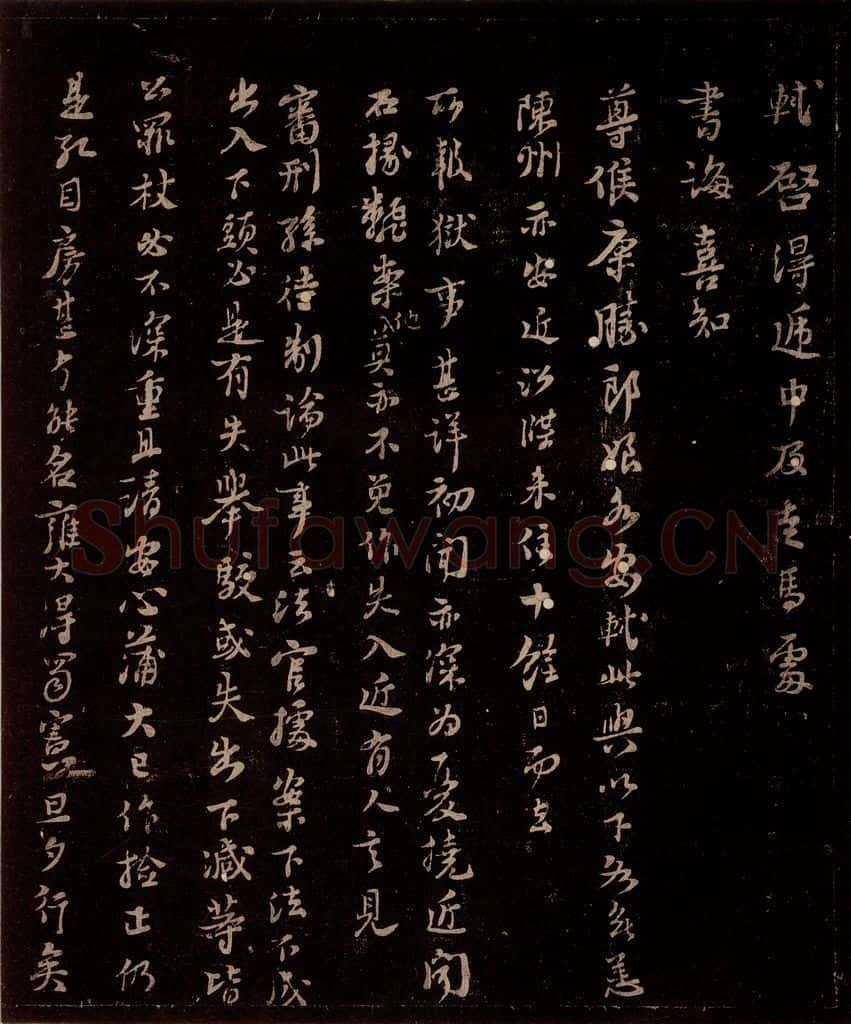 軾啓得遞中及走馬處
書誨喜知
尊候康勝郎娘各安軾此與以下各無恙
陳州亦安近來住十餘日而去
所報獄事甚詳初聞亦深為憂撓近聞
石掾麤案他莫亦不免作失入近有人言見
審刑孫待制論此事云法官據案下法不成
出入下頭必是有失舉駁或失出下減等皆
公罪杖必不深重且請安心蒲大已作檢正仍
是孔目房甚有能名雍大得蜀憲旦夕行矣
Shufawang.CN